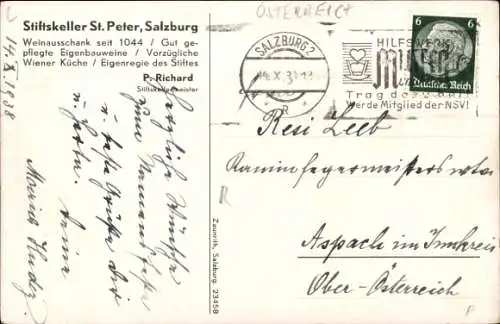 ÖSTERREICH
Stiftskeller St. Peter, Salzburg
Weinausschank seit 1044 / Gut ge-
pflegte Eigenbauweine / Vorzügliche
Wiener Küche / Eigenregie des Stiftes
P. Richard
Stiftskellermeister
14.X.1938
Herzliche Wünsche
zum Namensfeste
u. beste Grüße Dir
u. Herta. Deine
Maria
SALZBURG 2
HILFSWERK
Mutter
Werde Mitglied der NSV!
6 6
Deutsches Reich
Resi Leeb
Aspach im Innkreis
Ober-Österreich
Zaunrith, Salzburg. 23458